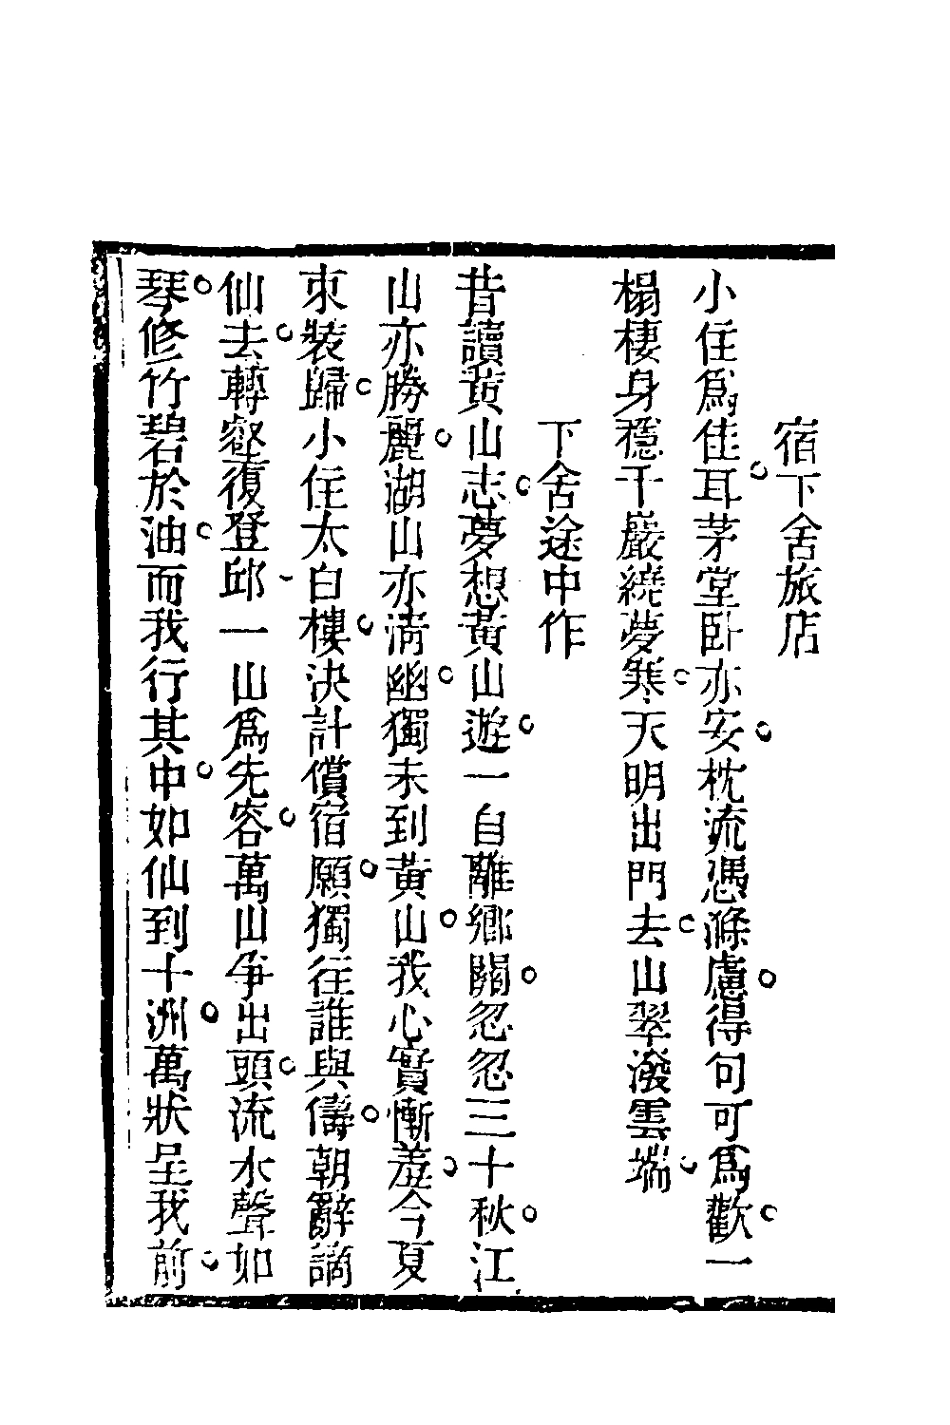 宿下舍旅店
小住爲佳耳茅堂卧亦安枕流憑滌慮得句可爲歡一
榻棲身穩千巖繞夢寒天明出門去山翠潑雲端
下舍途中作
昔讀黄山志夢想黃山遊一自離鄉關忽忽三十秋江
山亦勝麗湖山亦淸幽獨未到黃山我心實慚羞今夏
束裝歸小住太白樓決計償宿願獨往誰與儔朝辭謫
仙去轉壑復登邱一山爲先容萬山爭出頭流水聲如
琴修竹碧於油而我行其中如仙到十洲萬狀呈我前